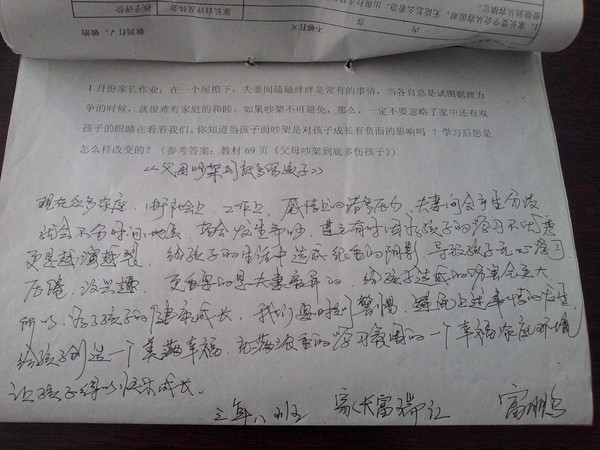 1、家长要学会从容面对，无论怎么着急，出现什么
要做到从容镇定。
内 容
不够打×
家长自评及体会
孩子评价
做到打√，做的
1月份家长作业：在一个屋檐下，夫妻间磕磕绊绊是常有的事情，当各自总是试图据理力
争的时候，就很难有家庭的和睦。如果吵架不可避免，那么，一定不要忽略了家中还有双
孩子的眼睛在看着我们。你知道当孩子面吵架是对孩子成长有负面的影响吗？学习后您是
怎么样改变的？（参考答案：教材69页《父母吵架到底多伤孩子》）
《父母吵架到底多伤孩子》
现在众多家庭，由于社会上、工作上、感情上的诸多压力，夫妻间会产生分歧
就会不分时间地点、场合发生争吵，甚至有时因孩子的学习不
更是越演越烈。给孩子的生活中造成很重的阴影，导致孩子无心学习
压腾，没兴趣。更重要的是夫妻离异的，给孩子造成的伤害会更大
所以，为了孩子的健康成长，我们要时刻警惕，避免上述事情的发生
给孩子创造一个美满幸福、充满浓重的学习氛围的一个幸福家庭环境
让孩子得以快乐成长。
三年八班 家长富瑞江 富鹏